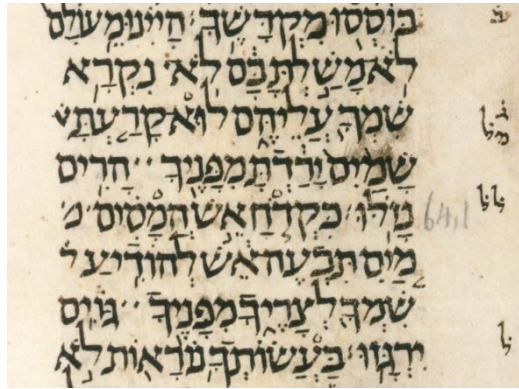 בּוֹסְסוּ מִקְדָּשֶׁךָ׃ הָיִינוּ מֵעוֹלָם
לֹא מָשַׁלְתָּ בָּם לֹא נִקְרָא
שִׁמְךָ עֲלֵיהֶם לוּא קָרַעְתָּ ש
שָׁמַיִם יָרַדְתָּ מִפָּנֶיךָ הָרִים
נָזֹלּוּ׃ כִּקְדֹחַ אֵשׁ הֲמָסִים מ 64,1
מַיִם תִּבְעֶה אֵשׁ לְהוֹדִיעַ ל
שִׁמְךָ לְצָרֶיךָ מִפָּנֶיךָ גּוֹיִם
יִרְגָּזוּ׃ בַּעֲשׂוֹתְךָ נוֹרָאוֹת לֹא